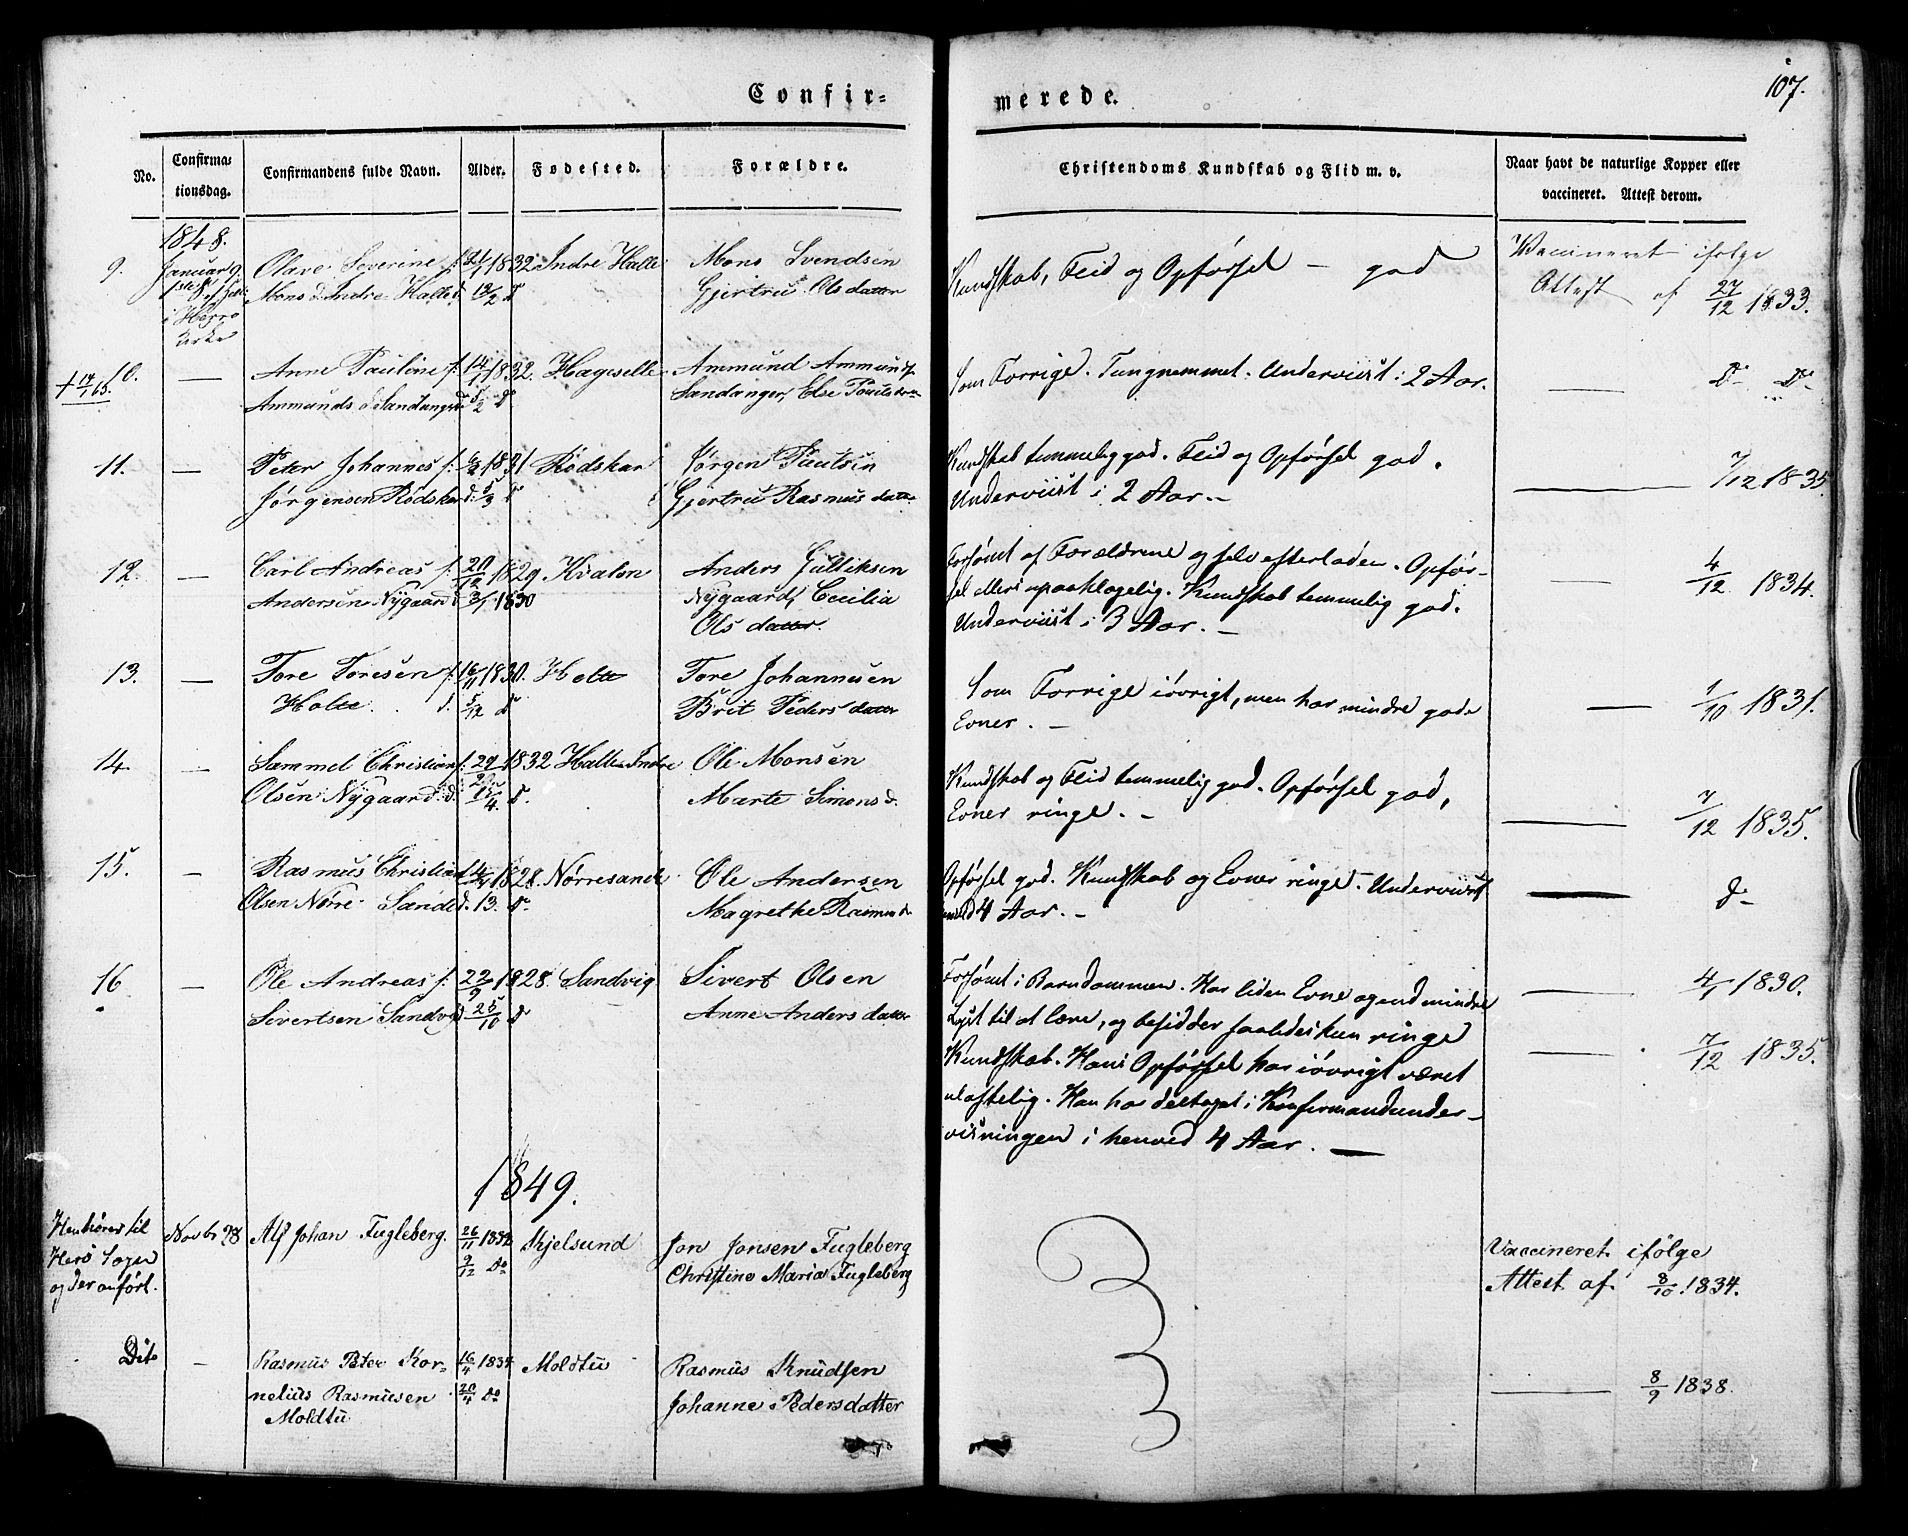 107.
Confir-
merede.
No.
Confirma-
tionsdag.
Confirmandens fulde Navn.
Alder.
Fødested.
Forældre.
Christendoms Kundskab og Flid m. v.
Naar havt de naturlige Kopper eller
vaccineret. Attest derom.
1848.
9. Januar 9. Olave Severine f. 21/1 1832 Indre Halle Mons Svendsen Kundskab, Flid og Opførsel - god Vaccineret ifølge
Mons d. Indre Halle d. 12/2 do Gjertru Olsdatter Attest af 27/12 1833.
i Herrø
Kirke
† 14/7 65. 10. — Anne Pauline f. 14/1 1832. Hageselle Ammund Ammunds. Som Forrige. Tungnemmet. Underviist i 2 Aar. — Do Do
Ammunds d. Sandanger d. 5/2 do Sandanger, Else Pouls
11. — Peter Johannes f. 6/2 1831 Rødskar Jørgen Paulsen Kundskab temmelig god. Flid og Opførsel god. — 7/12 1835.
Jørgensen Rødskar d. 5/3 do Gjertru Rasmusdatter Underviist i 2 Aar. -
12. — Carl Andreas f. 20/12 1829 Kvalen Anders Gulliksen Forsømt af Forældrene og selv efterladen. Opfør- — 4/12 1834.
Andersen Nygaard d. 3/1 1830 Nygaard, Cecilia sel ellers upaaklagelig. Kundskab temmelig god.
Olsdatter. Underviist i 3 Aar. -
13. — Tore Toresen f. 16/11 1830. Holte Tore Johannesen Som Forrige iøvrigt, men har mindre gode — 1/10 1831.
Holte. d. 5/12 do Brit Pedersdatter Evner. -
14. — Sammel Christian f. 1832 Halle Indre Ole Monsen Kundskab og Flid temmelig god. Opførsel god, — 7/12 1835.
Olsen Nygaard d. do. Marte Simonsd. Evner ringe. -
15. — Rasmus Christian 1828. Nørresande Ole Andersen Opførsel god. Kundskab og Evner ringe. - Underviist — do
Olsen Nørre Sande d. 13. do Magrethe Rasmusd. 4 Aar. -
16 — Ole Andreas f. 22/9 1828. Sandvig Sivert Olsen Forsømt i Barndommen. Har liden Evne og end mindre — 4/1 1830.
Sivertsen Sandvig d. 25/10 do Anne Andersdatter Lyst til at lære, og besidder saaledes kun ringe
Kundskab. Hans Opførsel har iøvrigt været — 7/12 1835.
ulastelig. Han har deltaget i Konfirmandunder-
visningen i henved 4 Aar. —
1849.
Henhører til Novbr 28 Alf Johan Fugleberg. 26/11 1832 Skjelsund Jon Jonsen Fugleberg Vaccineret ifølge
Herø Sogn 9/12 Do Christine Maria Fugleberg Attest af 8/10 1834.
og der anført.
Dito — Rasmus Peter Kor- 16/4 1834 Moldtu Rasmus Knudsen — 8/9 1838.
nelius Rasmusen 20/4 Do Johanne Pedersdatter
Moldtu